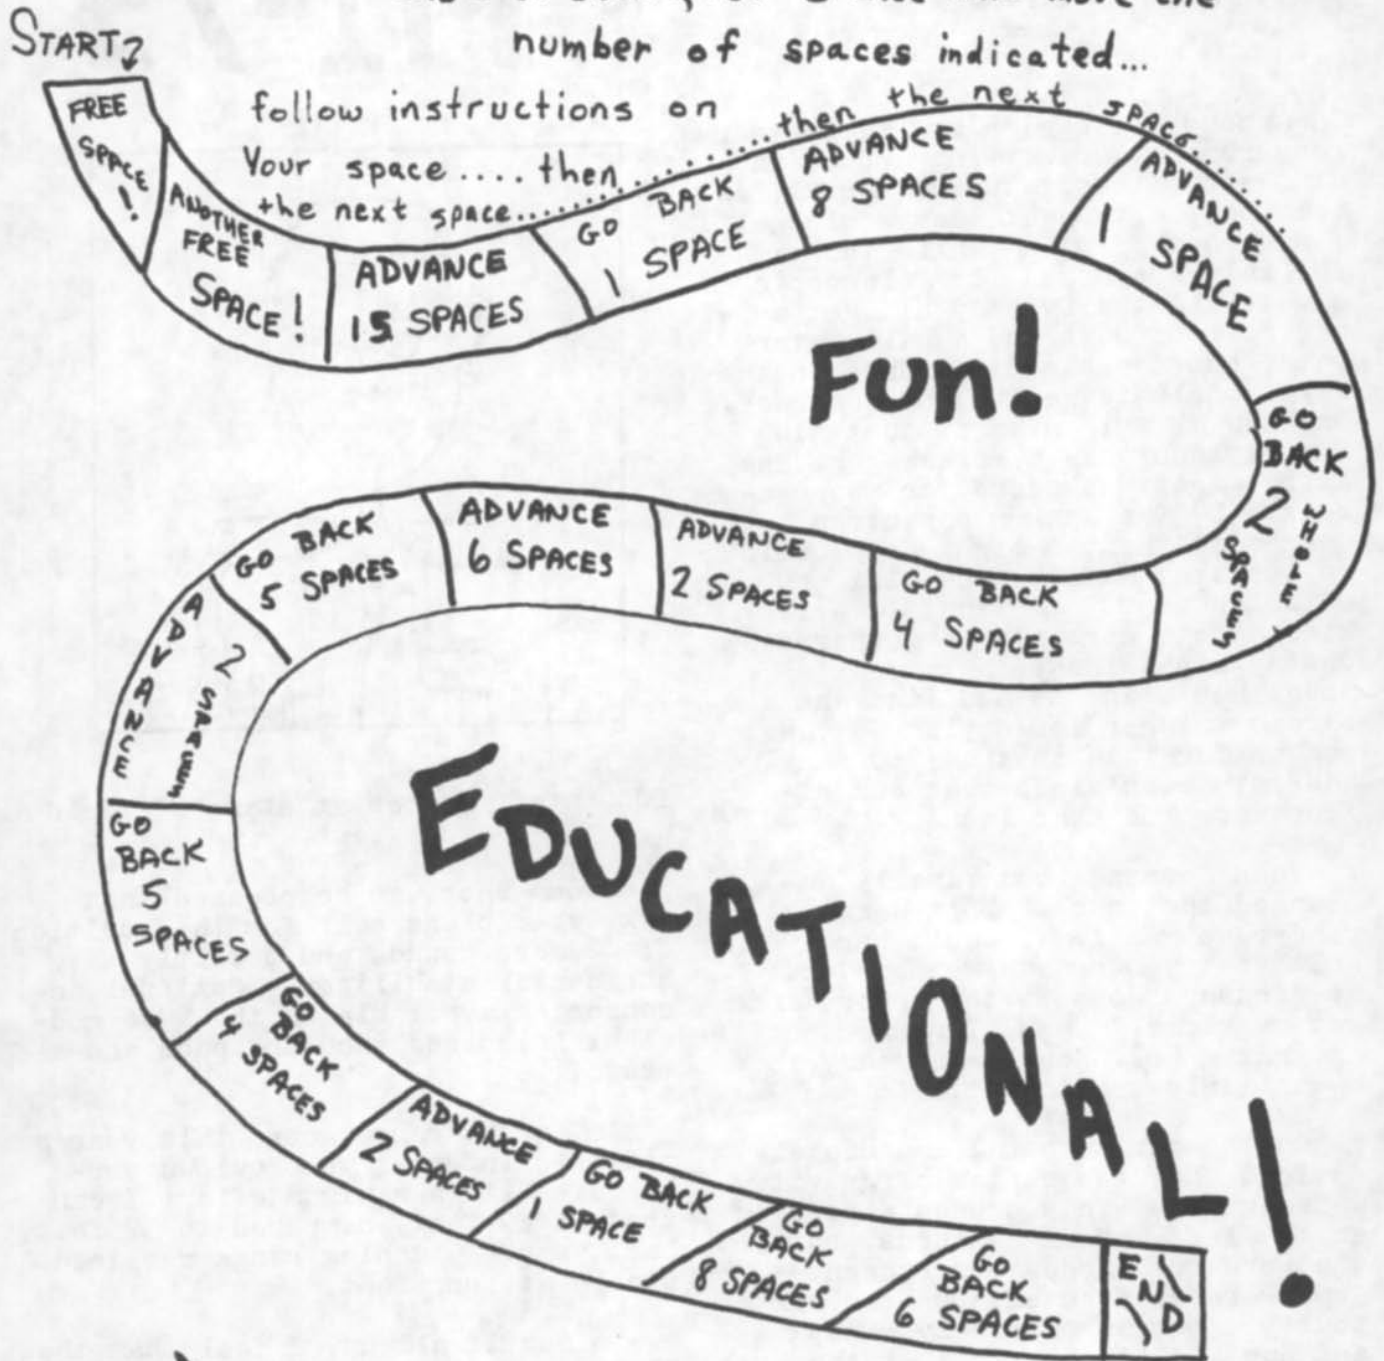 number of spaces indicated...
START
follow instructions on
Your space.... then
the next space.......
.......then the next space.......
FREE
SPACE
!
ANOTHER
FREE
SPACE!
ADVANCE
15 SPACES
GO BACK
1 SPACE
ADVANCE
8 SPACES
ADVANCE
1 SPACE
GO
BACK
2 WHOLE
SPACES
GO BACK
4 SPACES
ADVANCE
2 SPACES
ADVANCE
6 SPACES
GO BACK
5 SPACES
ADVANCE
2 SPACES
GO
BACK
5
SPACES
GO
BACK
4
SPACES
ADVANCE
2 SPACES
GO BACK
1 SPACE
GO
BACK
8 SPACES
GO
BACK
6 SPACES
END
FUn!
EDUCATIONAL!